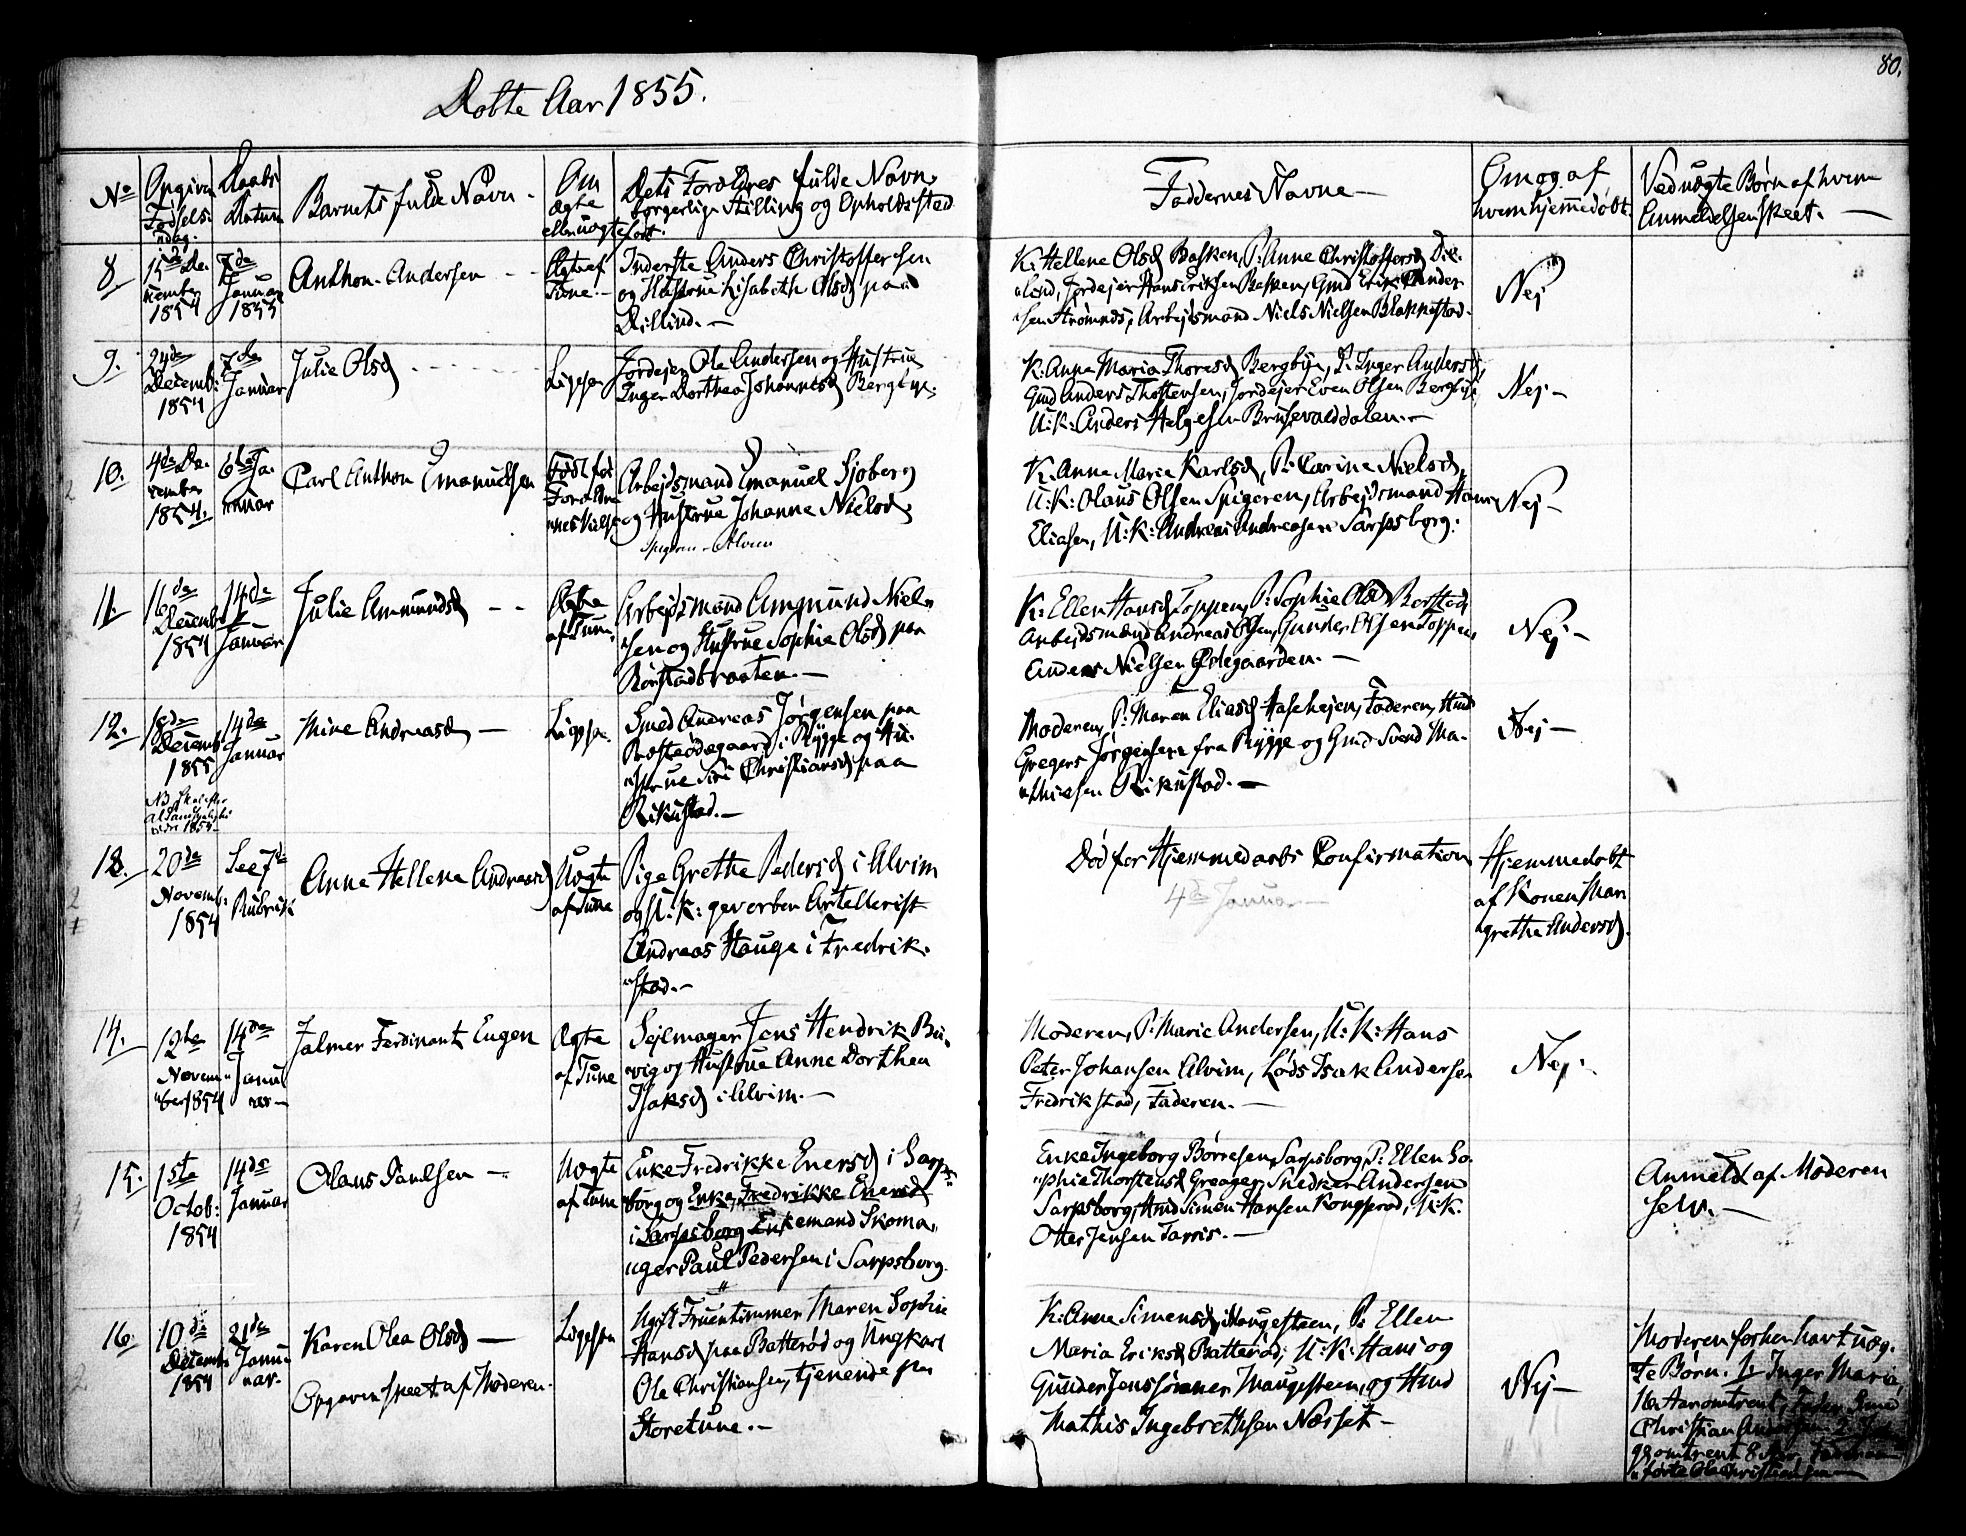 Døbte Aar 1855.
80.
No
Opgiven
Fødsels-
dag.
Daabs
Datum
Barnets fulde Navn -
Om
ægte
eller uægte født.
Dets Forældres fulde Navn,
borgerlige Stilling og Opholdssted
Faddernes Navne -
Om og af
hvem hjemmedøbt.
Ved uægte Børn af hvem
Anmeldelsen skeet. -
8
15de De-
cember
1854
7de
Januar
1855
Anthon Andersen - -
Ægte af
Tune. -
Inderste Anders Christoffersen
og Hustrue Lisabeth Olsd paa
K: Hellene Olsd Bakken, P: Anne Christoffersd
Jordejer Hans Eriksen Bakken, Gmd
Arbejdsmand Niels Nielsen
Nej
9.
24de
Decemb:
1854
7de
Januar
Julie Olsd
Ligesaa
Jordejer Ole Andersen og Hustrue
Inger Dorthea Johannesd Bergbye.
K: Anne Maria Thoresd Bergbye, P: Inger Andersd,
Gmd Anders Thostensen, Jordejer Even Olsen Bergbye,
U: K: Anders Helgesen -
Nej -
10.
4de De-
cember
1854.
6te Ja-
nuar
Carl Anthon Emanuelsen
Født før
Foræld-
Arbejdsmand Emanuel Sjøberg
og Hustrue Johanne Nielsd,
Spigeren Alvim
K: Anne Marie Karlsd, P: Carine Nielsd,
U: K: Olaus Olsen Spigeren, Arbejdsmand Hans
Eliasen, U: K: Andreas Andreasen Sarpsborg.
Nej -
11.
16de
Decemb
1854
14de
Januar
Julie Amundsd - -
Ægte
af Tune.
Arbejdsmand Amund Niel-
sen og Hustrue Sophie Olsd paa
Rørstadbraaten. -
K: Ellen Hansd Toppen, P: Sophie Olsd Rorstad,
Arbejdsmand Andreas Olsen, Gunder Olsen Toppen,
Anders Nielsen Ødegaarden. -
Nej -
12.
18de
Decemb.
1855
NB Skal efter
al Sandsynlighed
være 1854
14de
Januar
Mine Andreasd -
Ligesaa.
Smed Andreas Jørgensen paa
i Rygge og Hu-
strue Siri Christiansd paa
Rikustad. -
Moderen, P: Maren Eliasd Hasehejen, Faderen, Hmd
Gregers Jørgensen fra Rygge og Gmd Svend Ma-
thisen Rikustad. -
Nej -
13.
20de
Novemb:
1854
See 7de
Rubrik
Anne Hellene Andreasd
Uægte
af Tune
Pige Grethe Pedersd i Alvim
og U: K: gevorben Artellerist
Andreas Hauge i Fredrik-
stad. -
Død før Hjemmedaabs Confirmation
4de Januar -
Hjemmedøbt
af Konen Mar-
grethe Andersd.
14.
12te
Novem-
ber 1854
14de
Janu-
ar -
Jalmer Ferdinant Eugen
Ægte
af Tune
Sejlmager Jens Hendrik Bu-
vig og Hustrue Anne Dorthea
Isaksd i Alvim. -
Moderen, P: Marie Andersen, U: K: Hans
Peter Johansen Alvim, Lods Isak Andersen
Fredrikstad, Faderen. -
Nej -
15.
1ste
Octob:
1854
14de
Januar
Olaus Paulsen -
Uægte
af Tune
Enke Fredrikke Enersd i Sarps-
borg og Enke Fredrikke Enersd
i Sarpsborg Enkemand Skoma-
ger Paul Pedersen i Sarpsborg.
Enke Ingeborg Børresen, Sarpsborg, P: Ellen So-
phie Thorstensd Greager, Snedker Andersen
Sarpsborg, Hmd Simen Hansen Kongsrød, U: K:
Otter Jensen Tarris. -
Anmeldt af Moderen
selv. -
16.
10de
Decemb.
1854
21de
Janu-
ar.
Karen Olea Olsd -
Opgaven skeet af Moderen.
Ligesaa
Ugift Fruentimmer Maren Sophie
Hansd paa Batterød og Ungkarl
Ole Christiansen, tjenende paa
Storetune. -
K: Anne Simensd, Haugesteen, P: Ellen
Maria Eriksd Batterød, U: K: Hans og
Gunder Jenssønner Haugesteen, og Hmd
Mathis Ingebrethsen Næsset -
Nej -
Moderen før hen havt uæg-
te Børn. 1, Inger Marie,
16 Aar omtrent, Fader
Christian
omtrent 8 Aar
Ole Christiansen -